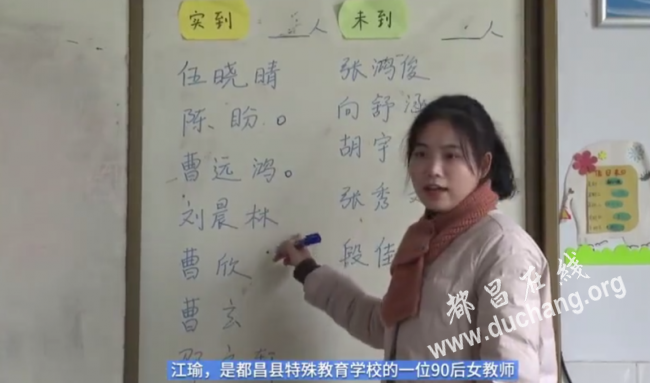 实到 人
未到 人
伍晓晴
陈盼。
曹远鸿。
刘晨林
曹欣
曹玄
张鸿俊
向舒涵
胡宇
张秀
段佳
都昌在线
www.duchang.org
江瑜，是都昌县特殊教育学校的一位90后女教师